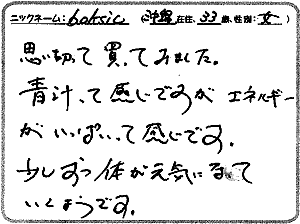 ニックネーム: boksic (沖縄 在住, 33 歳, 性別: 女)
思い切って買ってみました。
青汁って感じですが エネルギー
がいっぱいって感じです。
少しずつ体が元気になって
いくようです。